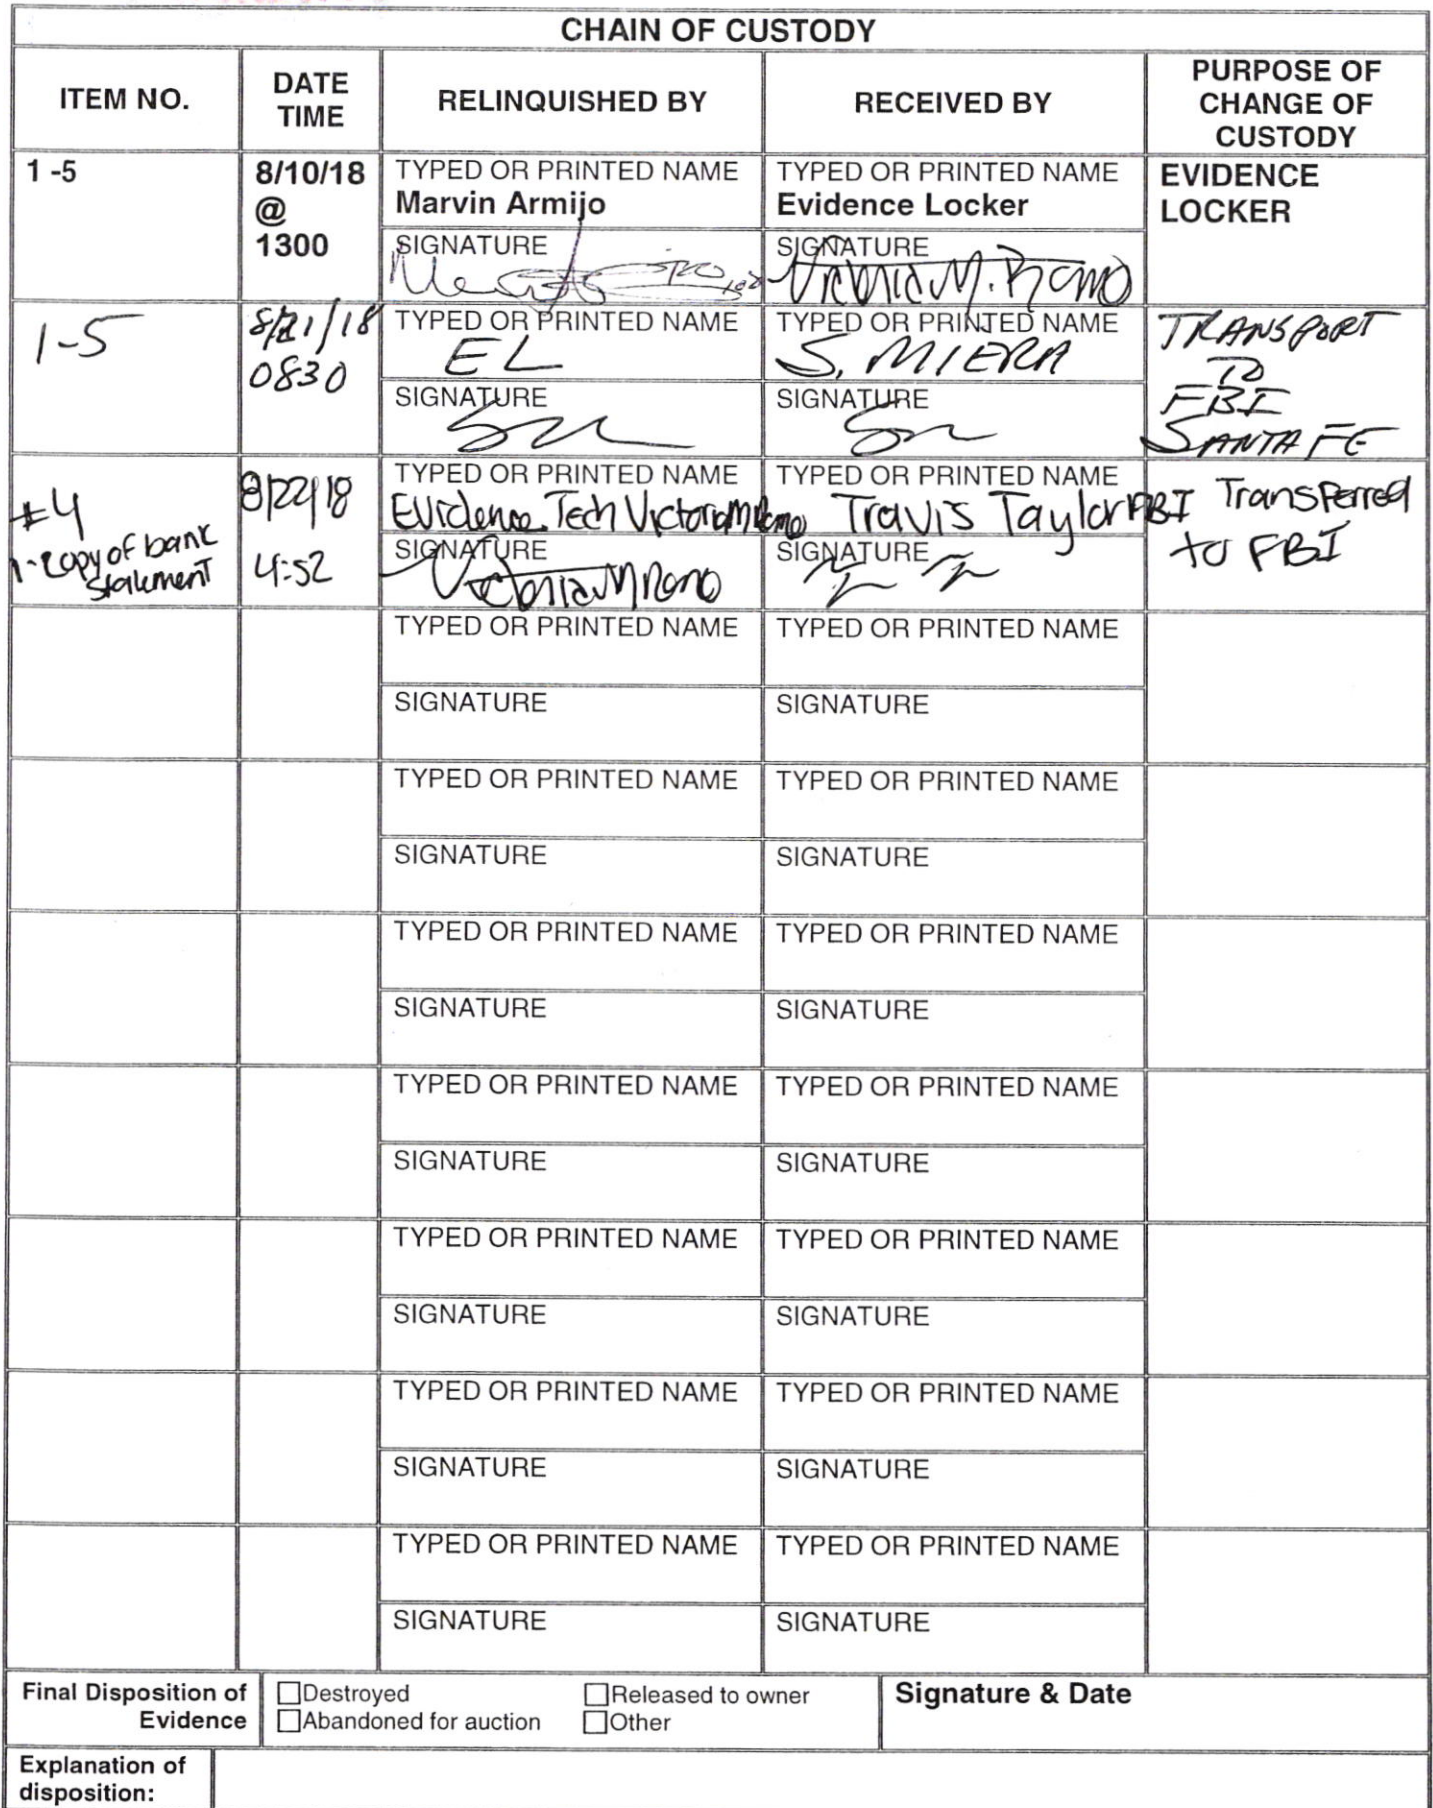 CHAIN OF CUSTODY
ITEM NO.
DATE
TIME
RELINQUISHED BY
RECEIVED BY
PURPOSE OF
CHANGE OF
CUSTODY
1 -5
8/10/18
@
1300
TYPED OR PRINTED NAME
Marvin Armijo
SIGNATURE
TYPED OR PRINTED NAME
Evidence Locker
SIGNATURE
EVIDENCE
LOCKER
1-5
8/21/18
0830
TYPED OR PRINTED NAME
EL
SIGNATURE
TYPED OR PRINTED NAME
S. MIERA
SIGNATURE
TRANSPORT
TO
FBI
SANTA FE
#4
1-copy of bank
statement
8/22/18
4:52
TYPED OR PRINTED NAME
Evidence Tech Victoria M
SIGNATURE
TYPED OR PRINTED NAME
Travis Taylor FBI
SIGNATURE
Transferred
to FBI
TYPED OR PRINTED NAME
SIGNATURE
TYPED OR PRINTED NAME
SIGNATURE
TYPED OR PRINTED NAME
SIGNATURE
TYPED OR PRINTED NAME
SIGNATURE
TYPED OR PRINTED NAME
SIGNATURE
TYPED OR PRINTED NAME
SIGNATURE
TYPED OR PRINTED NAME
SIGNATURE
TYPED OR PRINTED NAME
SIGNATURE
TYPED OR PRINTED NAME
SIGNATURE
TYPED OR PRINTED NAME
SIGNATURE
TYPED OR PRINTED NAME
SIGNATURE
TYPED OR PRINTED NAME
SIGNATURE
TYPED OR PRINTED NAME
SIGNATURE
TYPED OR PRINTED NAME
SIGNATURE
Final Disposition of
Evidence
Destroyed
Abandoned for auction
Released to owner
Other
Signature & Date
Explanation of
disposition: